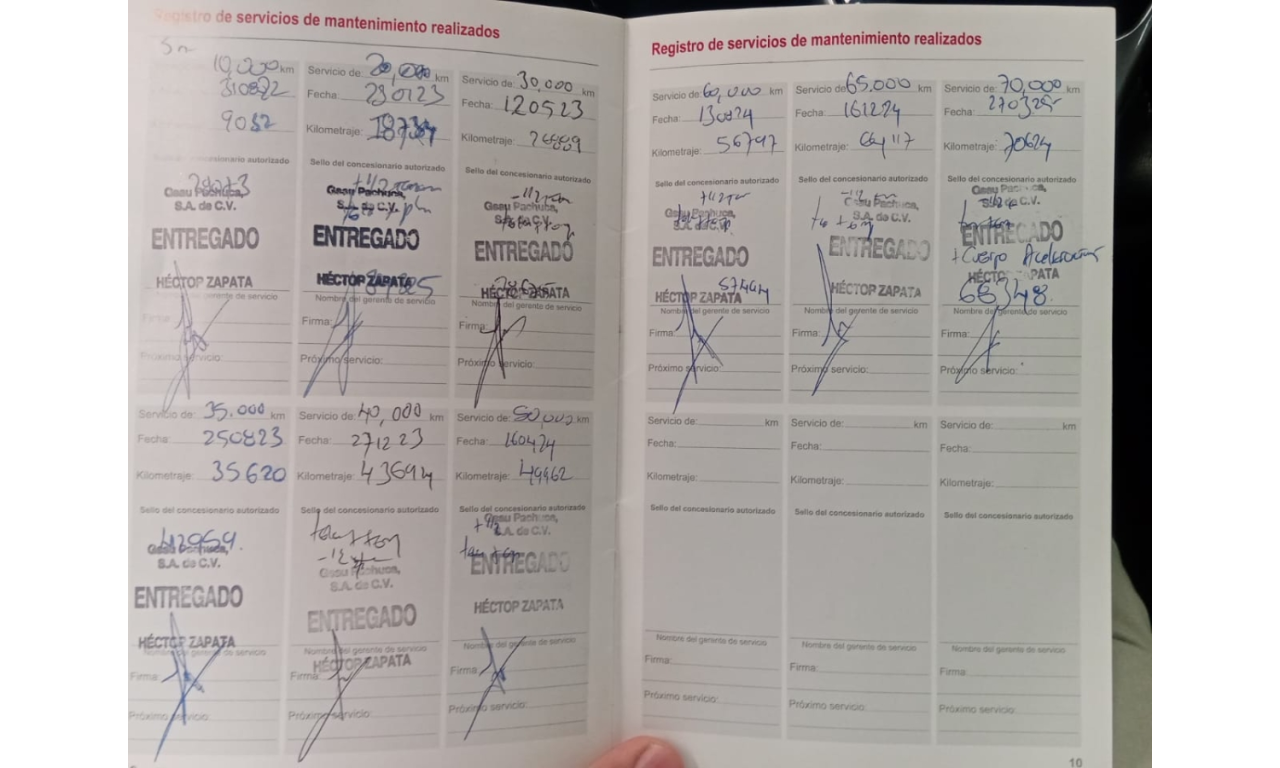 Registro de servicios de mantenimiento realizados
10,000 km
310872
9082
Sello del concesionario autorizado
Gasu Pachuca,
S.A. de C.V.
ENTREGADO
HÉCTOR ZAPATA
Nombre del gerente de servicio
Firma:
Próximo servicio:
Servicio de: 20,000 km
Fecha: 230123
Kilometraje:
Sello del concesionario autorizado
Pachuca,
S.A. de C.V.
ENTREGADO
HÉCTOR ZAPATA
Nombre del gerente de servicio
Firma:
Próximo servicio:
Servicio de: 30,000 km
Fecha: 120523
Kilometraje: 26889
Sello del concesionario autorizado
-1/2
Gasu Pachuca,
ENTREGADO
HÉCTOR ZAPATA
Nombre del gerente de servicio
Firma:
Próximo servicio:
Servicio de: 35.000 km
Fecha: 250823
Kilometraje: 35620
Sello del concesionario autorizado
42959.
Gasu Pachuca,
S.A. de C.V.
ENTREGADO
HÉCTOR ZAPATA
Nombre del gerente de servicio
Firma:
Próximo servicio:
Servicio de: 40,000 km
Fecha: 271223
Kilometraje: 43694
Sello del concesionario autorizado
Gasu Pachuca,
S.A. de C.V.
ENTREGADO
Nombre del gerente de servicio
HÉCTOR ZAPATA
Firma:
Próximo servicio:
Servicio de: 50,000 km
Fecha: 160424
Kilometraje: 49962
Sello del concesionario autorizado
Gasu Pachuca,
S.A. de C.V.
ENTREGADO
HÉCTOR ZAPATA
Nombre del gerente de servicio
Firma:
Próximo servicio:
Registro de servicios de mantenimiento realizados
Servicio de: 60,000 km
Fecha: 130824
Kilometraje: 56797
Sello del concesionario autorizado
Gasu Pachuca,
ENTREGADO
57464
HÉCTOR ZAPATA
Nombre del gerente de servicio
Firma:
Próximo servicio:
Servicio de: 65.000 km
Fecha: 161224
Kilometraje: 64117
Sello del concesionario autorizado
Gasu Pachuca,
S.A. de C.V.
ENTREGADO
HÉCTOR ZAPATA
Nombre del gerente de servicio
Firma:
Próximo servicio:
Servicio de: 70,000 km
Fecha: 270325
Kilometraje: 70624
Sello del concesionario autorizado
Gasu Pachuca,
de C.V.
ENTREGADO
+ Cuerpo Aceleración
HÉCTOR ZAPATA
68348.
Nombre del gerente de servicio
Firma:
Próximo servicio:
Servicio de: km
Fecha:
Kilometraje:
Sello del concesionario autorizado
Nombre del gerente de servicio
Firma:
Próximo servicio:
Servicio de: km
Fecha:
Kilometraje:
Sello del concesionario autorizado
Nombre del gerente de servicio
Firma:
Próximo servicio:
Servicio de: km
Fecha:
Kilometraje:
Sello del concesionario autorizado
Nombre del gerente de servicio
Firma:
Próximo servicio:
10